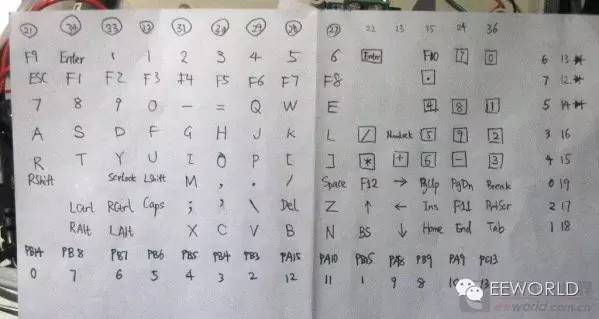 21 34 33 32 31 30 29 28 27 22 23 35 24 36
F9 Enter ` 1 2 3 4 5 6 Enter F10 7 0 6 13
ESC F1 F2 F3 F4 F5 F6 F7 F8 . 7 12
7 8 9 0 - = Q W E 4 8 1 5 14
A S D F G H J K L / Numlock 5 9 2 3 16
R T Y U I O P [ ] * + 6 - 3 4 15
RShift Scrlock LShift M , . / Space F12 → PgUp PgDn Break 0 19
Lctrl RCtrl Caps ; ' \ Del Z ↑ ← Ins F11 PrtScr 2 17
RAlt LAlt X C V B N BS ↓ Home End Tab 1 18
PB14 PB8 PB7 PB6 PB5 PB4 PB3 PA15 PA10 PB15 PA8 PB9 PA9 PC13
0 7 6 5 4 3 2 12 11 1 9 8 10 13
EEWORLD
eeworld.com.cn